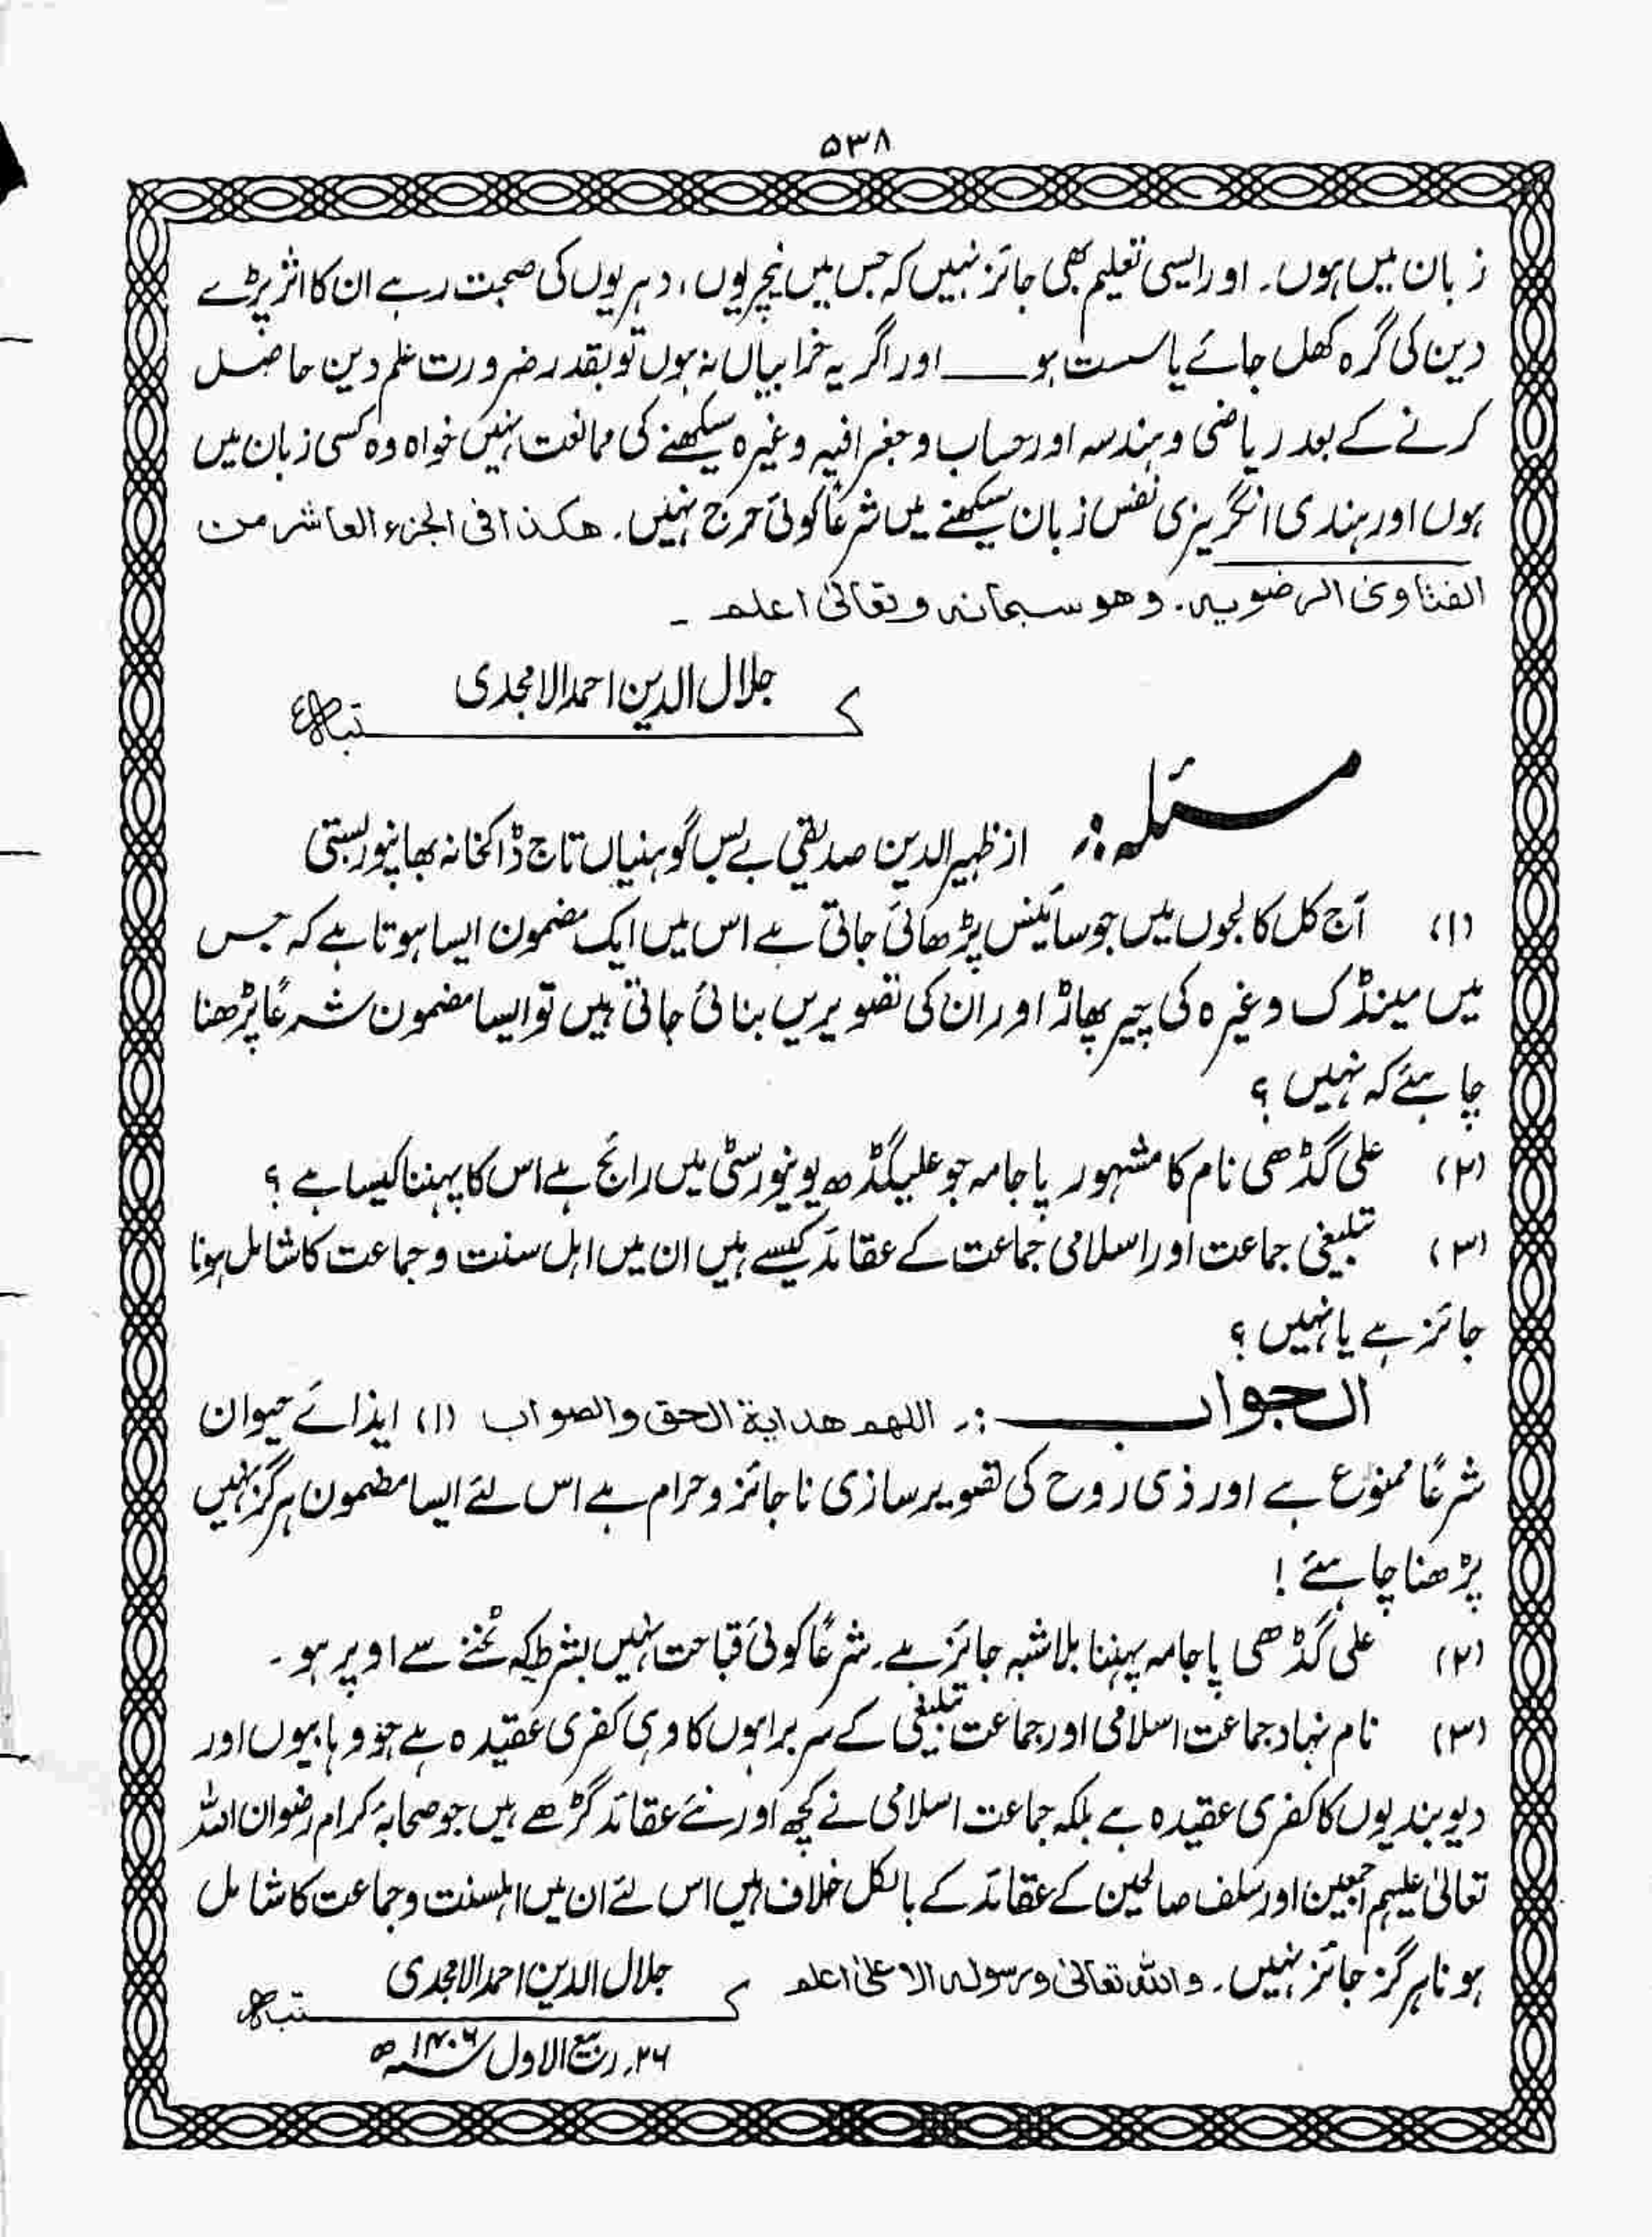 ۵۳۸
زبان میں ہوں۔ اور ایسی تعلیم بھی جائز نہیں کہ جس میں نیچریوں، دہریوں کی صحبت رہے ان کا اثر پڑے
دین کی گرہ کھل جائے یا سست ہو ــــــ اور اگر یہ خرابیاں نہ ہوں تو بقدر ضرورت علم دین حاصل
کرنے کے بعد ریاضی و ہندسہ اور حساب و جغرافیہ وغیرہ سیکھنے کی ممانعت نہیں خواہ وہ کسی زبان میں
ہوں اور ہندی انگریزی نفس زبان سیکھنے میں شرعًا کوئی حرج نہیں۔ ھکذا فی الجزء العاشر من
الفتاوی الرضویہ۔ وھو سبحانہ وتعالیٰ اعلم ۔
جلال الدین احمد الامجدی
کتبہ
مسئلہ:۔ از ظہیر الدین صدیقی بے بس گوہنیاں تاج ڈاکخانہ بھانپور بستی
(۱) آج کل کالجوں میں جو سائینس پڑھائی جاتی ہے اس میں ایک مضمون ایسا ہوتا ہے کہ جس
میں مینڈک وغیرہ کی چیر پھاڑ اور ان کی تصویریں بنائی جاتی ہیں تو ایسا مضمون شرعًا پڑھنا
چاہئے کہ نہیں ؟
(۲) علی گڈھی نام کا مشہور پاجامہ جو علیگڈھ یونیورسٹی میں رائج ہے اس کا پہننا کیسا ہے ؟
(۳) تبلیغی جماعت اور اسلامی جماعت کے عقائد کیسے ہیں ان میں اہل سنت و جماعت کا شامل ہونا
جائز ہے یا نہیں ؟
الجواب :۔ اللھم ھدایة الحق والصواب (۱) ایذائے حیوان
شرعًا ممنوع ہے اور ذی روح کی تصویر سازی ناجائز و حرام ہے اس لئے ایسا مضمون ہرگز نہیں
پڑھنا چاہئے !
(۲) علی گڈھی پاجامہ پہننا بلاشبہ جائز ہے۔ شرعًا کوئی قباحت نہیں بشرطیکہ ٹخنے سے اوپر ہو ۔
(۳) نام نہاد جماعت اسلامی اور جماعت تبلیغی کے سربراہوں کا وہی کفری عقیدہ ہے جو وہابیوں اور
دیوبندیوں کا کفری عقیدہ ہے بلکہ جماعت اسلامی نے کچھ اور نئے عقائد گڑھے ہیں جو صحابۂ کرام رضوان اللہ
تعالیٰ علیہم اجمعین اور سلف صالحین کے عقائد کے بالکل خلاف ہیں اس لئے ان میں اہلسنت و جماعت کا شامل
ہونا ہرگز جائز نہیں۔ واللہ تعالیٰ ورسولہ الاعلیٰ اعلم
جلال الدین احمد الامجدی
کتبہ
۲۶ ربیع الاول ۱۴۰۶ھ